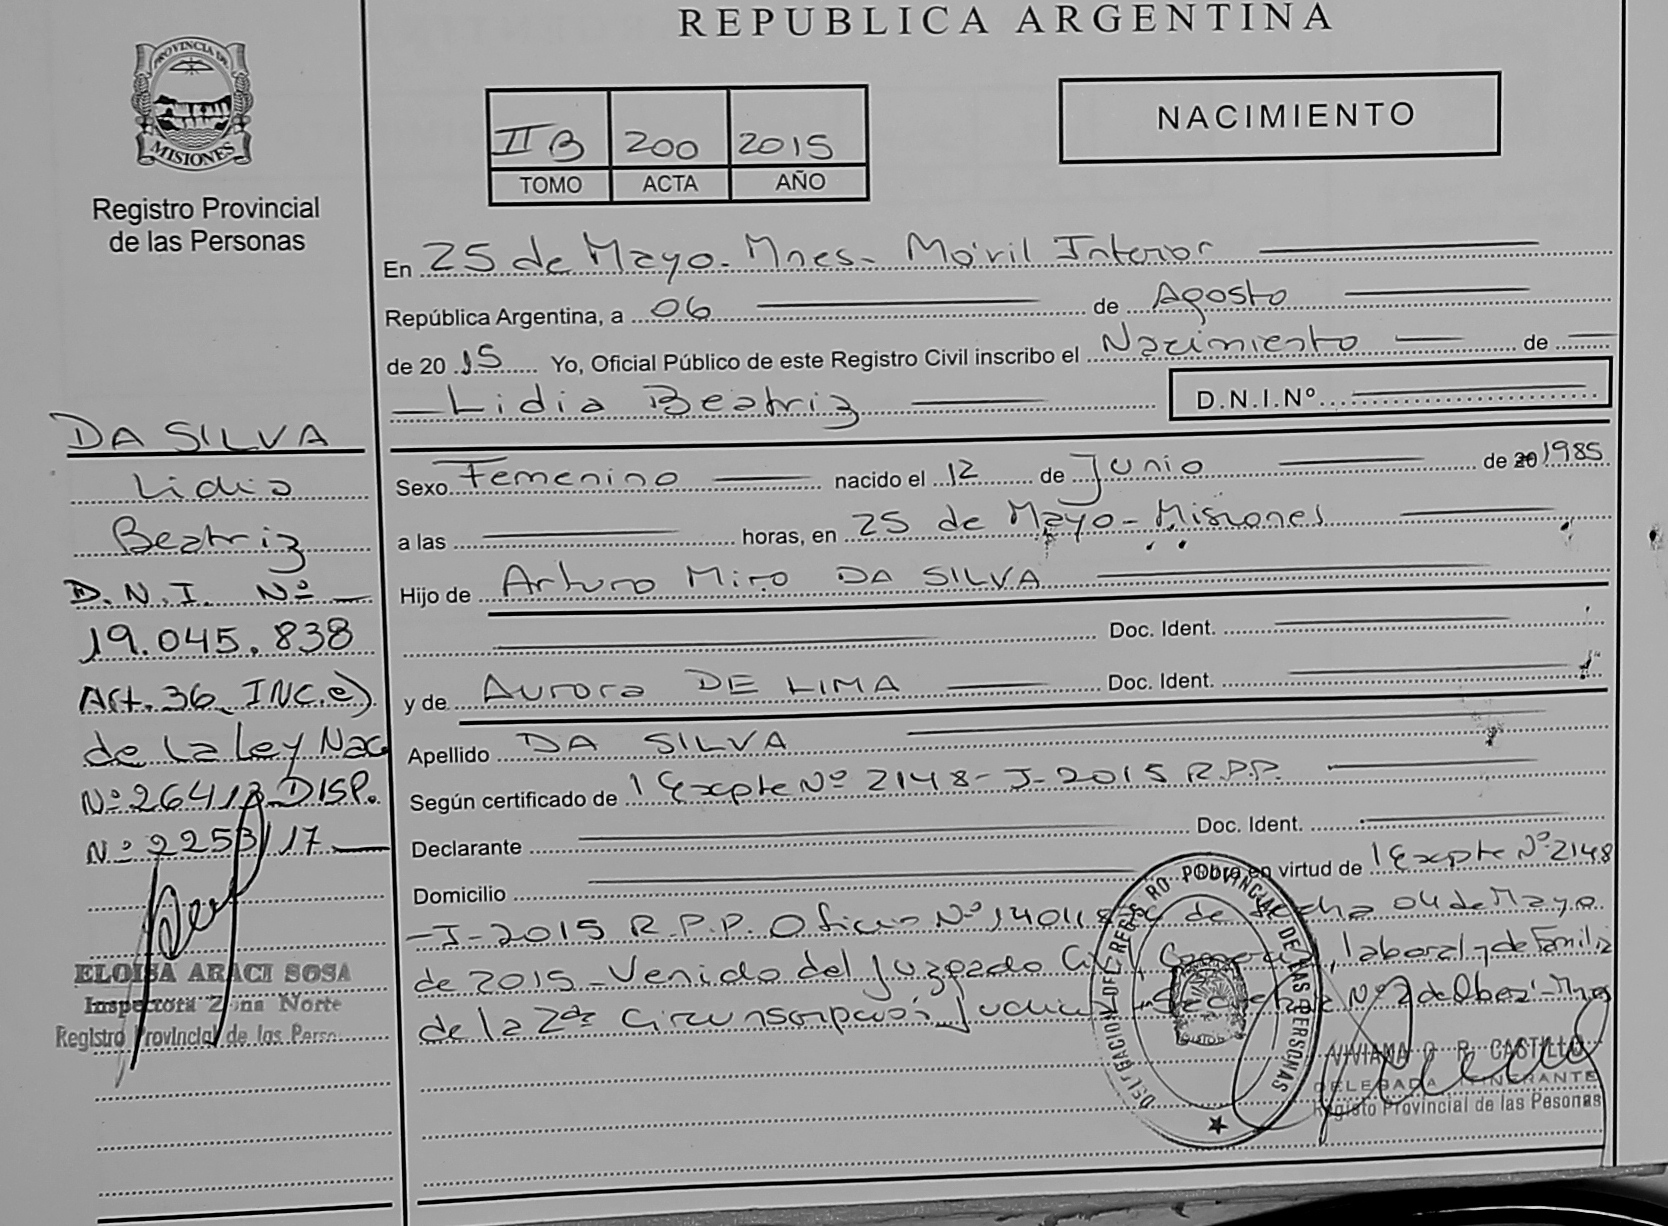 REPUBLICA ARGENTINA
PROVINCIA DE
MISIONES
Registro Provincial
de las Personas
II B 200 2015
TOMO ACTA AÑO
NACIMIENTO
En 25 de Mayo - Mnes - Móvil Interior
República Argentina, a 06 de Agosto
de 20 15 Yo, Oficial Público de este Registro Civil inscribo el Nacimiento de
Lidia Beatriz D.N.I.Nº
Sexo Femenino nacido el 12 de Junio de 20 1985
a las horas, en 25 de Mayo - Misiones
Hijo de Arturo Miro DA SILVA
Doc. Ident.
y de Aurora DE LIMA Doc. Ident.
Apellido DA SILVA
Según certificado de 1 Expte Nº 2148-J-2015 R.P.P.
Declarante Doc. Ident.
Domicilio Obra en virtud de 1 Expte Nº 2148
-J-2015 R.P.P. Oficio Nº de fecha 04 de Mayo
de 2015 - Venido del Juzgado Civil, Comercial, laboral y de Familia
de la 2da Circunscripción Judicial Nº 2 de Oberá - Mnes
DA SILVA
Lidia
Beatriz
D.N.I. Nº
19.045.838
Art. 36 INC. e)
de la Ley Nac
Nº 26413 DISP.
Nº 2253/17
ELOISA ARACI SOSA
Inspectora Zona Norte
Registro Provincial de las Perso
DELEGACION DEL REGISTRO PROVINCIAL DE LAS PERSONAS
VIVIANA G. R. CASTILLO
DELEGADA ITINERANTE
Registo Provincial de las Pesonas